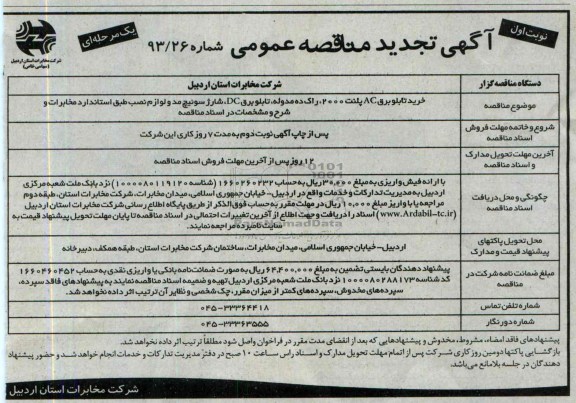 نوبت اول
آگهی تجدید مناقصه عمومی شماره ۹۳/۲۶
یک مرحله‌ای
شرکت مخابرات استان اردبیل
(سهامی خاص)
دستگاه مناقصه گزار
شرکت مخابرات استان اردبیل
موضوع مناقصه
خرید تابلو برق AC پلنت ۲۰۰۰، راک ده مدوله، تابلو برق DC، شارژ سوئیچ مد و لوازم نصب طبق استاندارد مخابرات و
شرح و مشخصات در اسناد مناقصه
شروع و خاتمه مهلت فروش
اسناد مناقصه
پس از چاپ آگهی نوبت دوم به مدت ۷ روز کاری این شرکت
آخرین مهلت تحویل مدارک
و اسناد مناقصه
۱۲ روز پس از آخرین مهلت فروش اسناد مناقصه
چگونگی و محل دریافت
اسناد مناقصه
با ارائه فیش واریزی به مبلغ ۳۰۰،۰۰۰ ریال به حساب ۱۶۶۰۲۶۰۲۳۲ (شناسه ۱۰۰۰۰۸۰۱۱۹۱۲۰) نزد بانک ملت شعبه مرکزی
اردبیل به مدیریت تدارکات و خدمات واقع در اردبیل- خیابان جمهوری اسلامی، میدان مخابرات، شرکت مخابرات استان، طبقه دوم
مراجعه یا با واریز مبلغ ۱۰،۰۰۰ ریال در مهلت مقرر به حساب فوق الذکر از طریق پایگاه اطلاع رسانی شرکت مخابرات استان اردبیل
(www.Ardabil-tc.ir) اسناد را دریافت و جهت اطلاع از آخرین تغییرات احتمالی در اسناد مناقصه تا پایان مهلت تحویل پیشنهاد قیمت به
سایت نامبرده مراجعه نمایند.
محل تحویل پاکتهای
پیشنهاد قیمت و مدارک
اردبیل- خیابان جمهوری اسلامی، میدان مخابرات، ساختمان شرکت مخابرات استان، طبقه همکف، دبیرخانه
مبلغ ضمانت نامه شرکت در
مناقصه
پیشنهاد دهندگان بایستی تضمین به مبلغ ۶۴،۴۰۰،۰۰۰ ریال به صورت ضمانت نامه بانکی یا واریزی نقدی به حساب ۱۶۶۰۴۶۰۴۵۲
کد شناسه ۱۰۰۰۰۸۰۲۸۸۱۷۳ نزد بانک ملت شعبه مرکزی اردبیل تهیه و ضمیمه اسناد مناقصه نمایند به پیشنهادهای فاقد سپرده،
سپرده‌های مخدوش، سپرده‌های کمتر از میزان مقرر، چک شخصی و نظایر آن ترتیب اثر داده نخواهد شد.
شماره تلفن تماس
۰۴۵-۳۳۳۶۴۴۱۸
شماره دورنگار
۰۴۵-۳۳۳۶۳۵۵۵
پیشنهادهای فاقد امضاء، مشروط، مخدوش و پیشنهادهایی که بعد از انقضای مدت مقرر در فراخوان واصل شود مطلقاً ترتیب اثر داده نخواهد شد.
بازگشایی پاکتها دومین روز کاری شرکت پس از اتمام مهلت تحویل مدارک و اسناد راس ساعت ۱۰ صبح در دفتر مدیریت تدارکات و خدمات انجام خواهد شد و حضور پیشنهاد
دهندگان در جلسه بلامانع می‌باشد.
شرکت مخابرات استان اردبیل